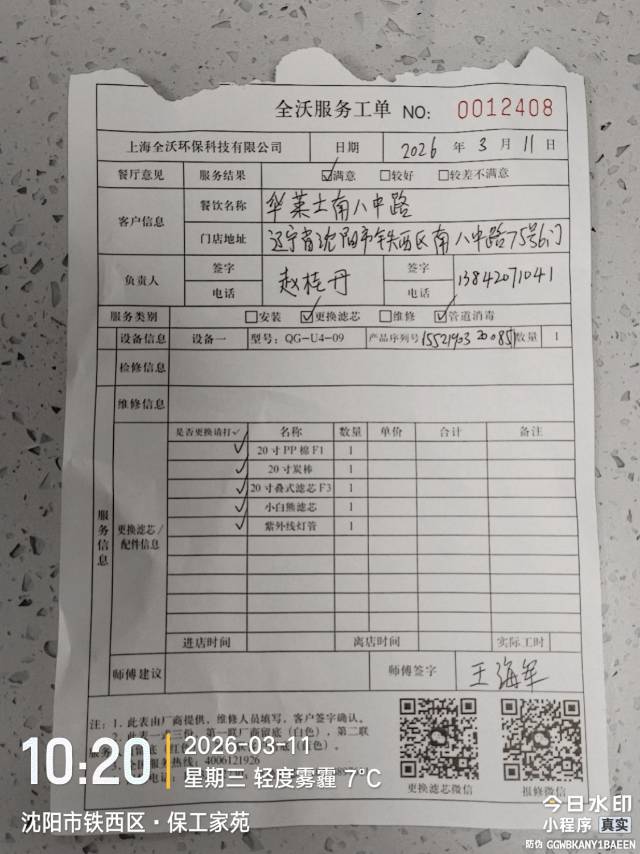 全沃服务工单 NO: 0012408
上海全沃环保科技有限公司 日期 2026 年 3 月 11 日
餐厅意见 服务结果 ☑满意 □较好 □较差不满意
客户信息 餐饮名称 华莱士南八中路
门店地址 辽宁省沈阳市铁西区南八中路75号6门
负责人 签字 赵桂丹 签字
电话 电话 13842071041
服务类别 □安装 ☑更换滤芯 □维修 ☑管道消毒
设备信息 设备一 型号:QG-U4-09 产品序列号 数量 1
检修信息
维修信息
服务信息
更换滤芯/配件信息
是否更换请打✓ 名称 数量 单价 合计 备注
✓ 20寸PP棉F1 1
✓ 20寸炭棒 1
✓ 20寸叠式滤芯F3 1
✓ 小白熊滤芯 1
✓ 紫外线灯管 1
进店时间 离店时间 实际工时
师傅建议 师傅签字 王海军
注:1、此表由厂商提供,维修人员填写,客户签字确认。
第一联厂商留底(白色),第二联
服务热线:4006121926
更换滤芯微信 报修微信
10:20
2026-03-11
星期三 轻度雾霾 7°C
沈阳市铁西区·保工家苑
今日水印
小程序 真实
防伪 GGWBKANY1BAEEN